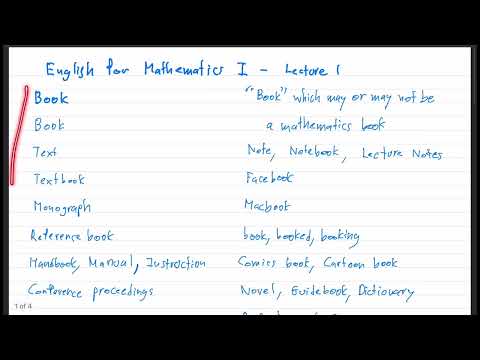 English for Mathematics I - Lecture 1
Book "Book" which may or may not be
Book a mathematics book
Text Note, Notebook, Lecture Notes
Textbook Facebook
Monograph Macbook
Reference book book, booked, booking
Handbook, Manual, Instruction Comics book, Cartoon book
Conference proceedings Novel, Guidebook, Dictionary
1 of 4